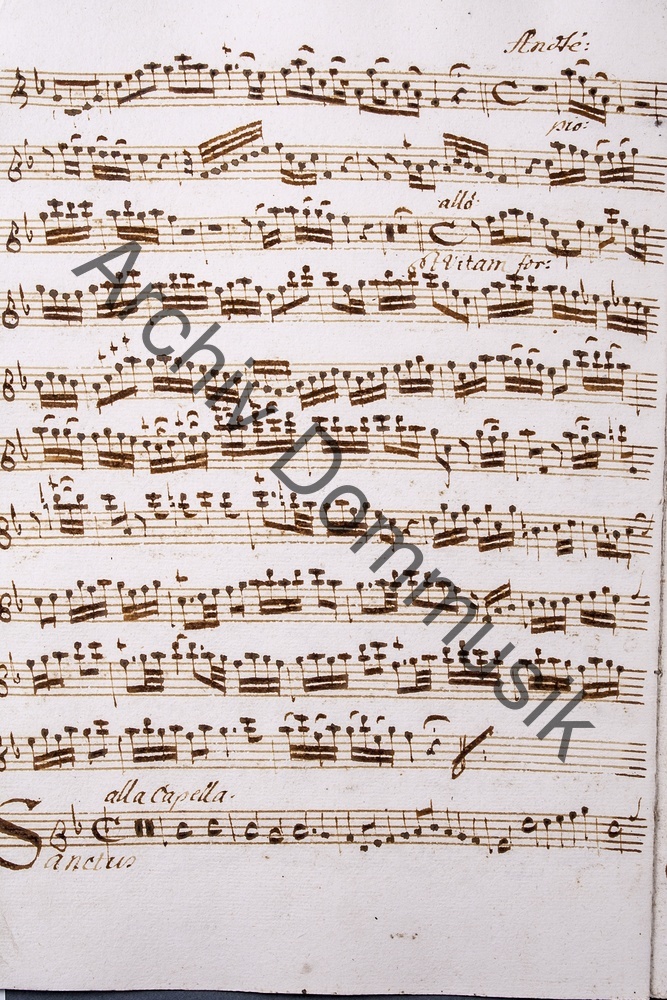 Andte:
pio:
allo:
Et Vitam for:
Archiv Dommusik
alla Capella.
Sanctus